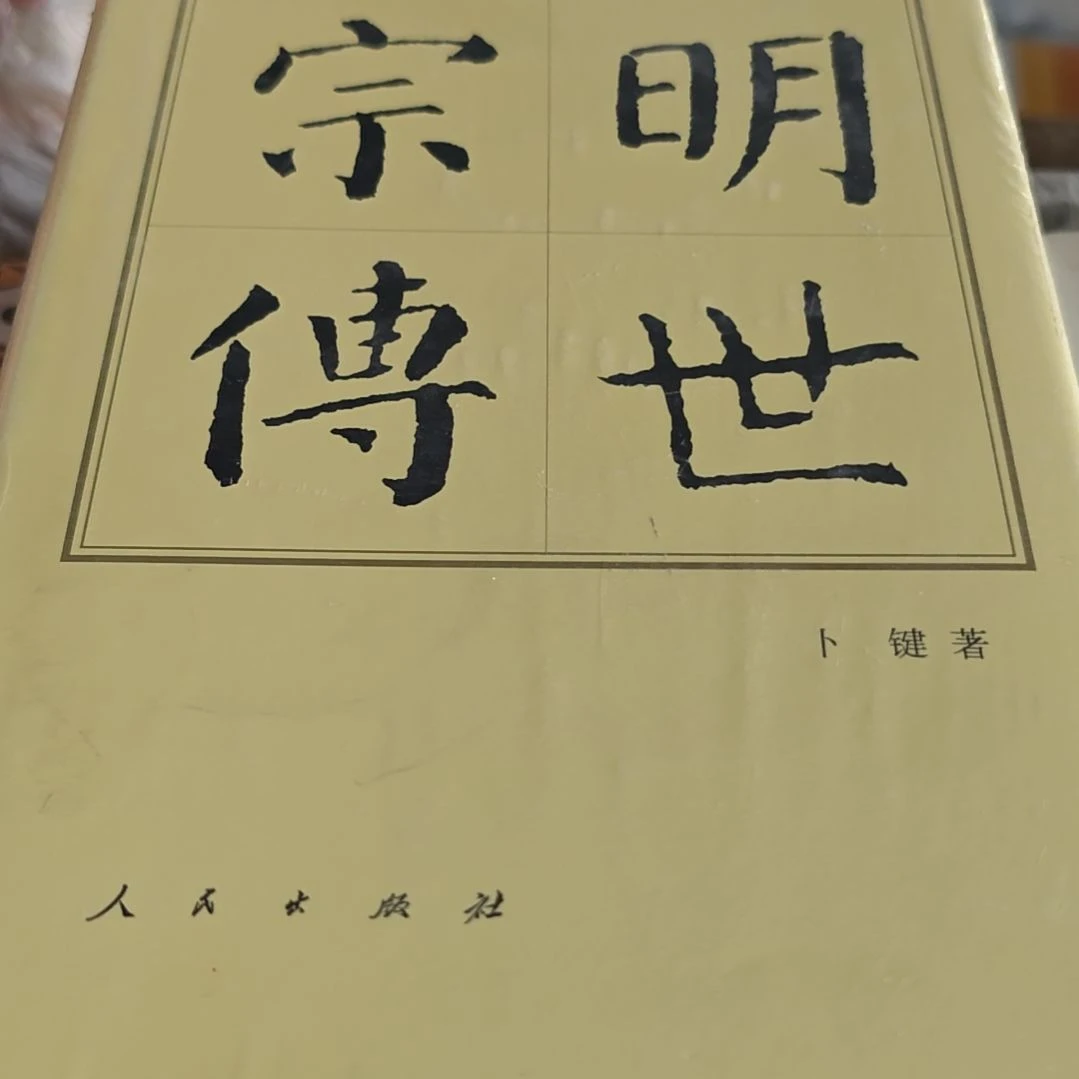 明世
宗傳
卜 键 著
人民出版社